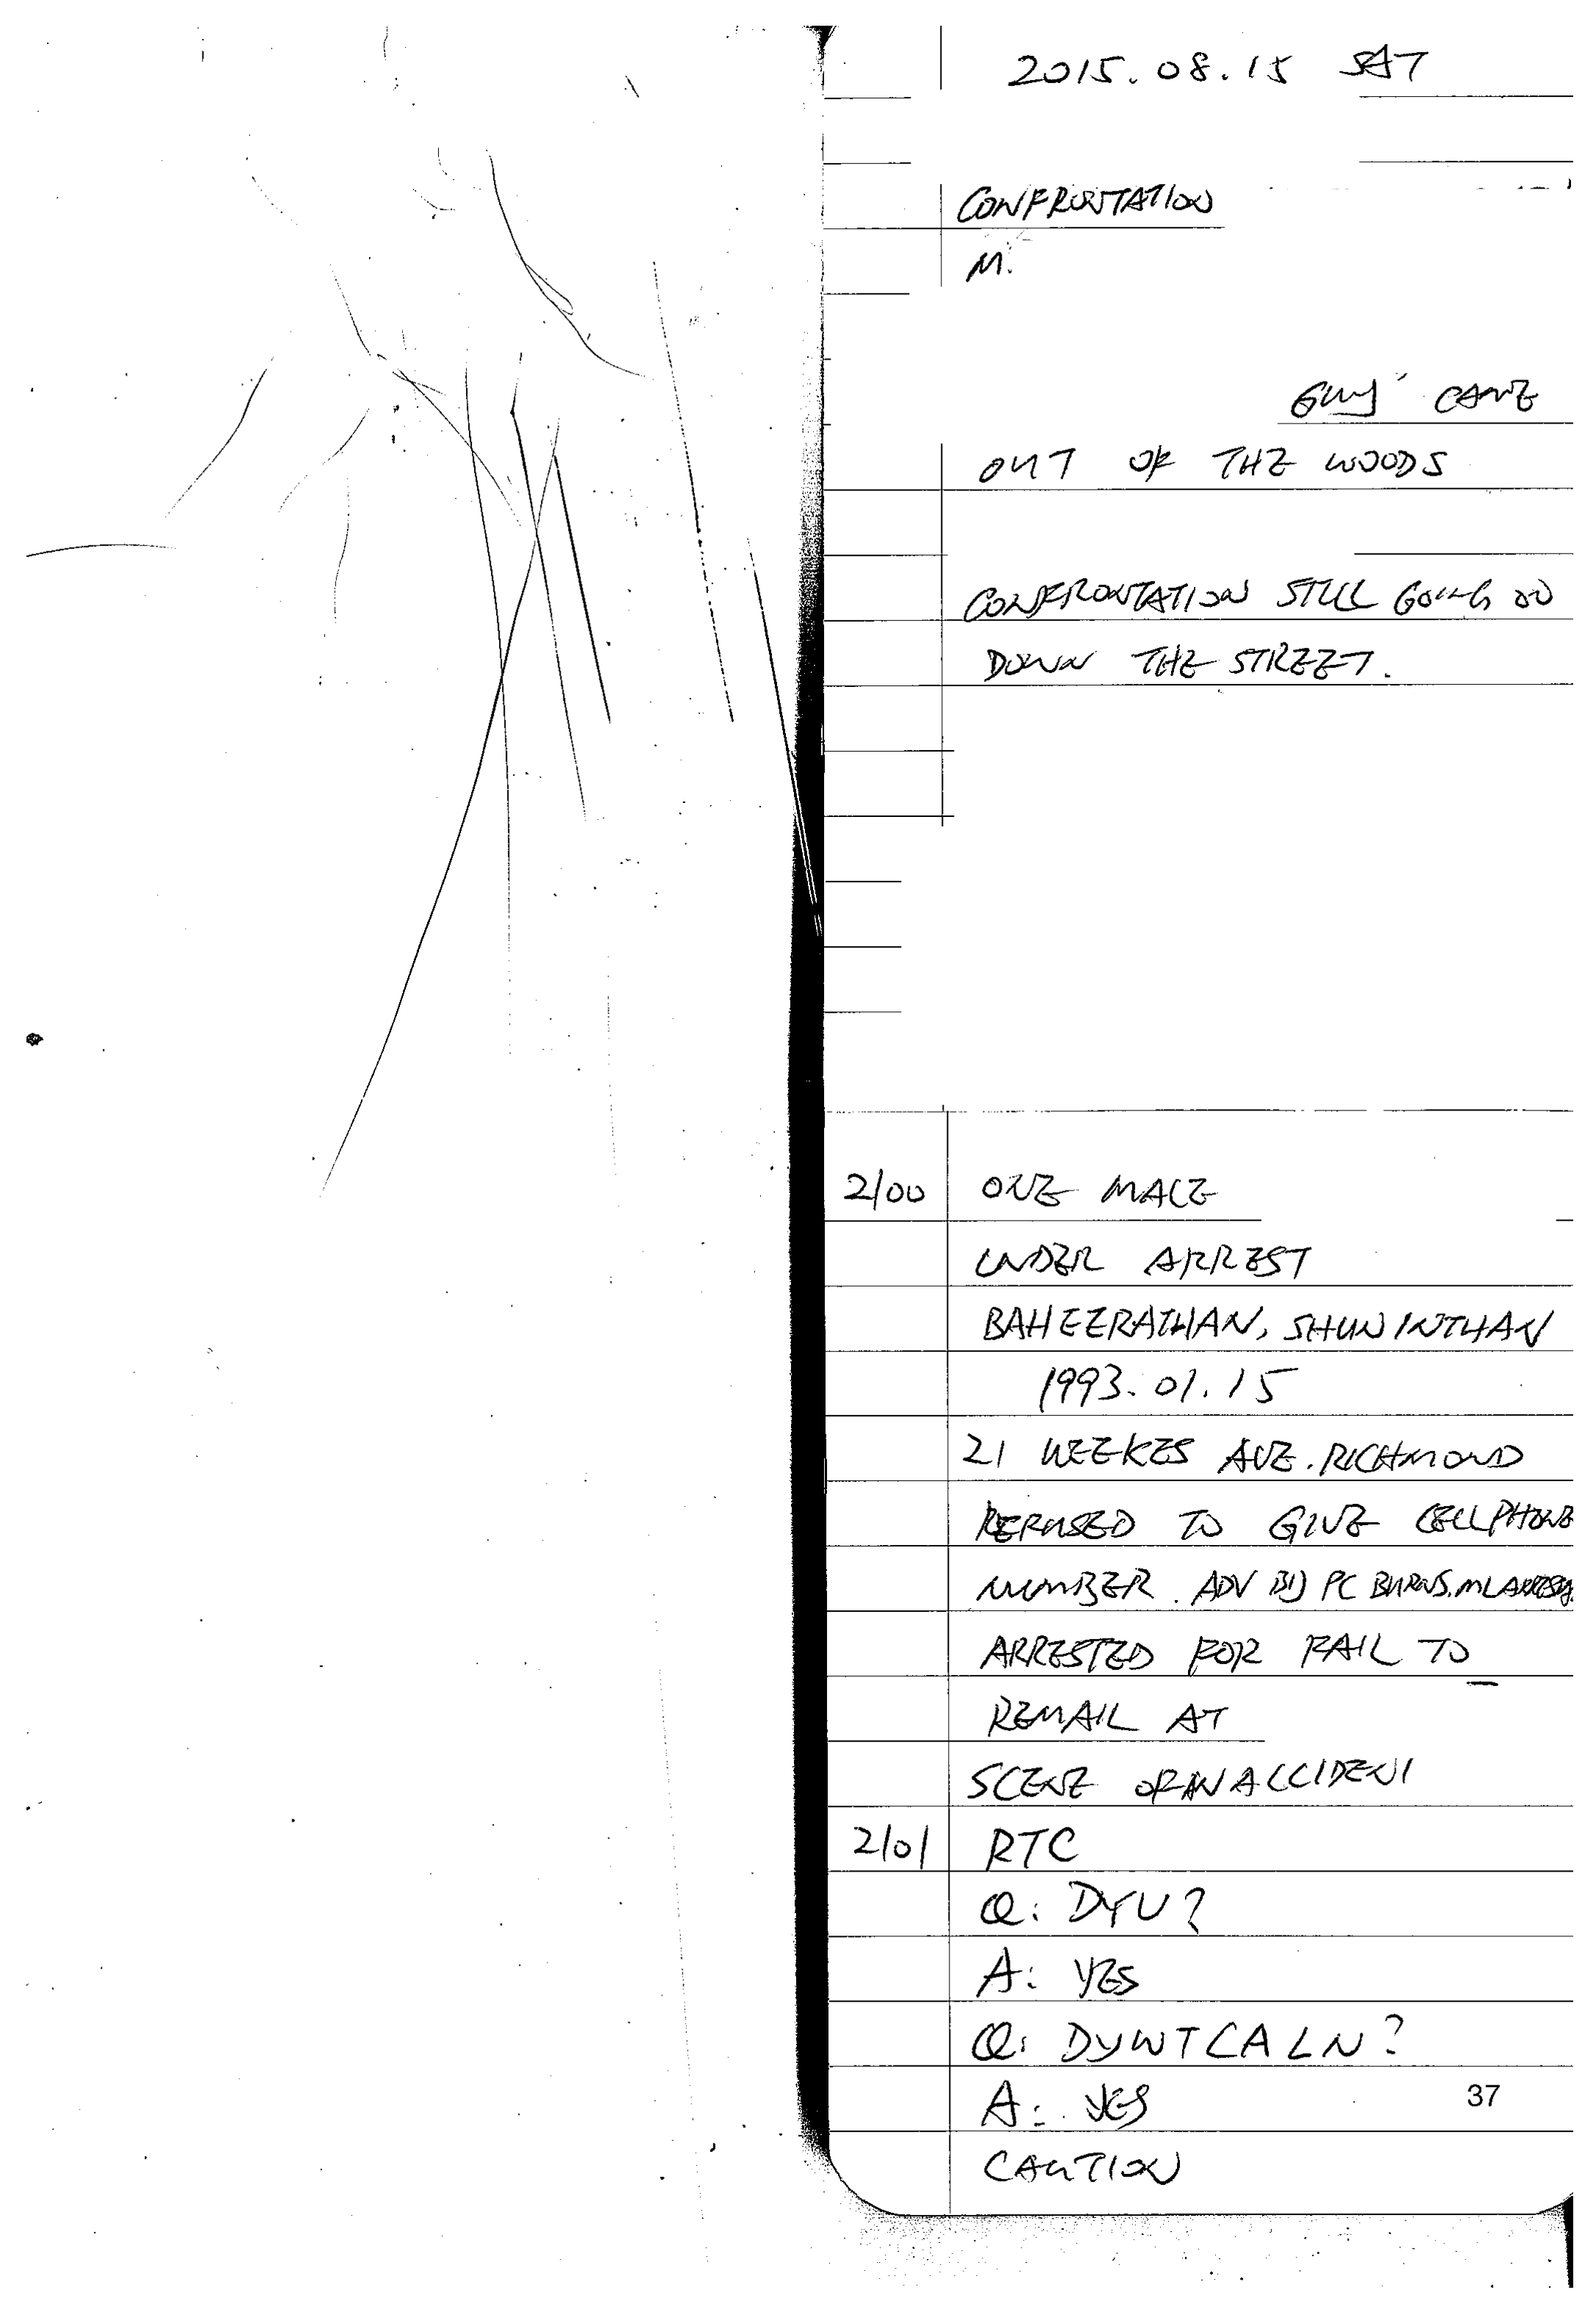 2015.08.15 SAT
CONFRONTATION
M.
GUY CAME
OUT OF THE WOODS
CONFRONTATION STILL GOING ON
DOWN THE STREET.
2100 ONE MALE
UNDER ARREST
BAHEERATHAN, SHUNINTHAN
1993.01.15
21 WEEKES AVE. RICHMOND
REFUSED TO GIVE CELLPHONE
NUMBER. ADV BY PC BURNS.
ARRESTED FOR FAIL TO
REMAIL AT
SCENE OF AN ACCIDENT
2101 RTC
Q: DYU?
A: YES
Q: DYWTCALN?
A: YES
37
CAUTION